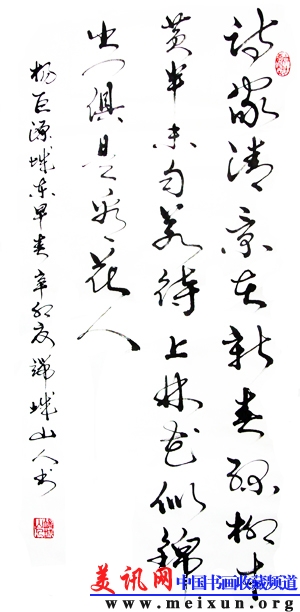 詩家清景在新春綠柳才
黄半未匀若待上林花似錦
出門俱是看花人
楊巨源城東早春 辛卯夏 城山人書
美讯网 中国书画收藏频道
www.meixun.org